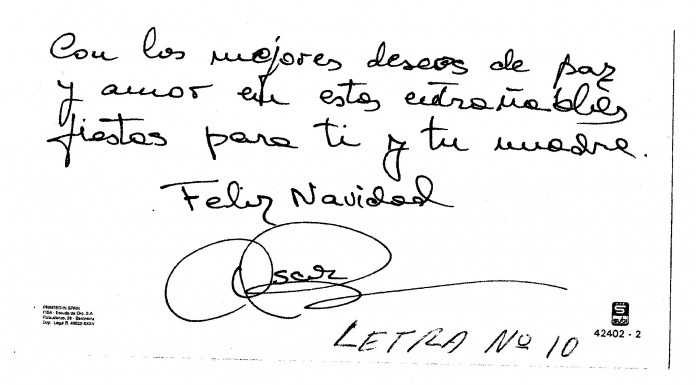 Con los mejores deseos de paz
y amor en estas entrañables
fiestas para ti y tu madre.
Feliz Navidad
Oscar
PRINTED IN SPAIN
FISA - Escudo de Oro, S.A.
Barcelona
Dep. Legal B.
42402 - 2
LETRA Nº 10